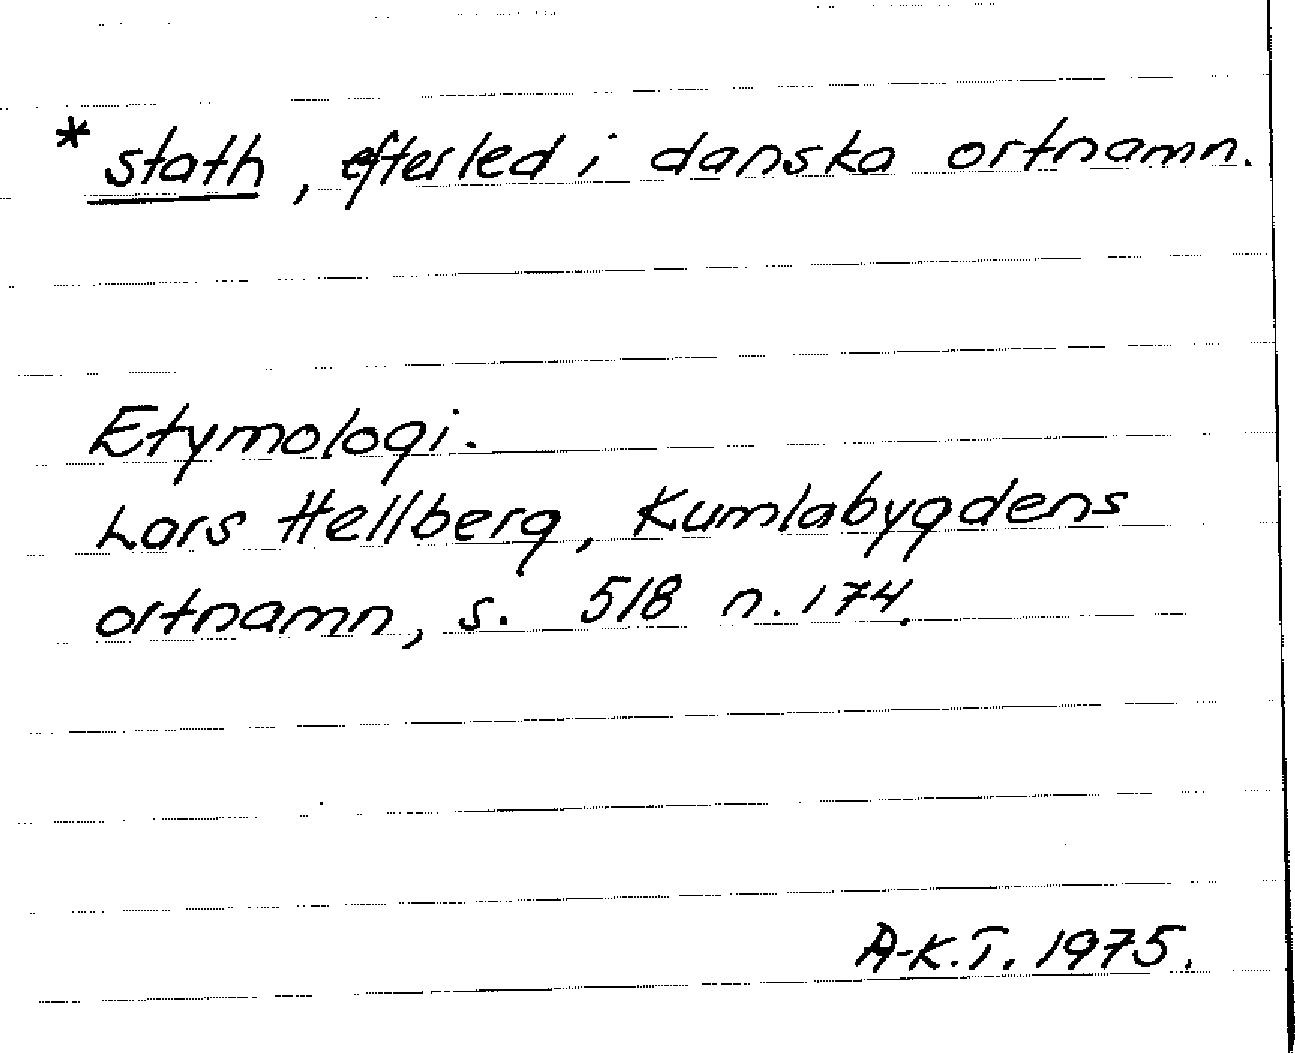 *stath, efterled i danska ortnamn.
Etymologi.
Lars Hellberg, Kumlabygdens
ortnamn, s. 518 n. 174.
A-K.T. 1975.